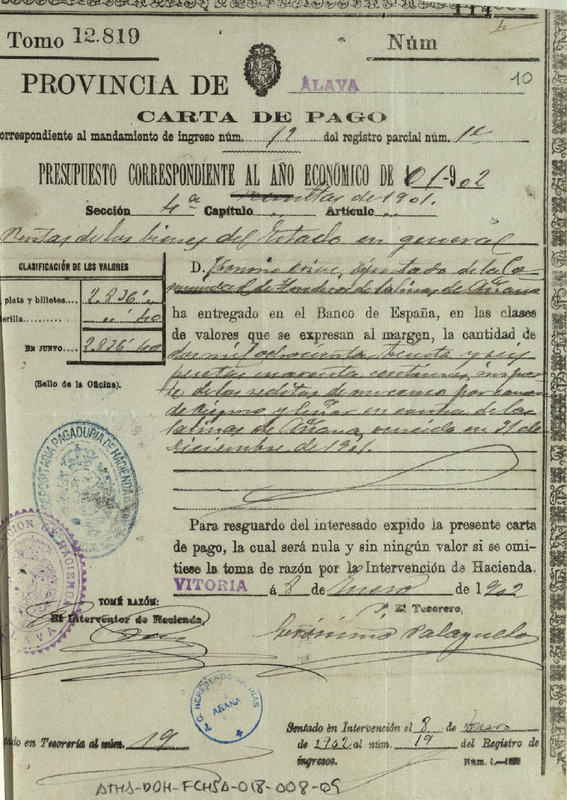 114
Tomo 12.819 Núm
PROVINCIA DE ALAVA 10
CARTA DE PAGO
orrespondiente al mandamiento de ingreso núm. 12 del registro parcial núm. 1º
PRESUPUESTO CORRESPONDIENTE AL AÑO ECONÓMICO DE 101-902
Resultas de 1901.
Sección 4ª Capítulo " Artículo "
Rentas de los bienes del Estado en general
CLASIFICACIÓN DE LOS VALORES
plata y billetes. 2.836 "
derilla. " 40
EN JUNTO. 2836'40
(Sello de la Oficina).
D. diputado de la Co-
munidad de Herederos de Salinas de Añana
ha entregado en el Banco de España, en las clases
de valores que se expresan al margen, la cantidad de
dos mil ochocientas treinta y seis
pesetas cuarenta céntimos, importe
de los reditos de un censo por
de y en contra de las
Salinas de Añana, vencido en 31 de
Diciembre de 1901.
DEPOSITARIA PAGADURIA DE HACIENDA
Para resguardo del interesado expido la presente carta
de pago, la cual será nula y sin ningún valor si se omi-
tiese la toma de razón por la Intervención de Hacienda.
VITORIA á 8 de Enero de 1902
INTERVENCION DE HACIENDA
ALAVA
TOMÉ RAZÓN:
El Interventor de Hacienda,
El Tesorero,
Gerónimo Palazuelo
A.C. HEREDEROS SALINAS
AÑANA
tado en Tesorería al núm. 19
Sentado en Intervención el 8 de Enero
de 1902 al núm. 19 del Registro de
ingresos.
Núm. 1.
ATHA-DOH-FCHSA-018-008-09